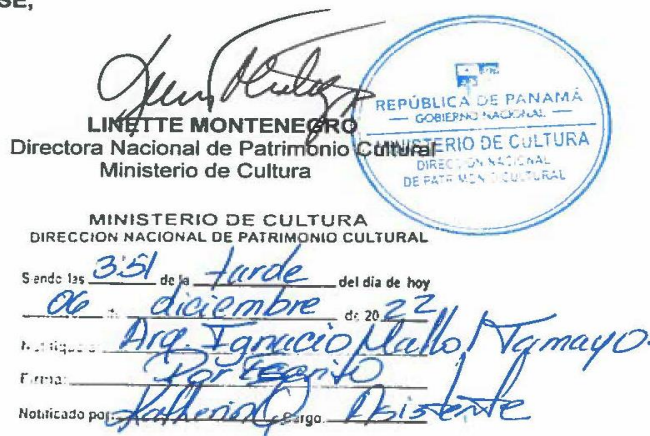 SE,
LINETTE MONTENEGRO
Directora Nacional de Patrimonio Cultural
Ministerio de Cultura
REPÚBLICA DE PANAMÁ
GOBIERNO NACIONAL
MINISTERIO DE CULTURA
DIRECCIÓN NACIONAL
DE PATRIMONIO CULTURAL
MINISTERIO DE CULTURA
DIRECCION NACIONAL DE PATRIMONIO CULTURAL
Siendo las 3:51 de la tarde del día de hoy
06 de diciembre de 2022
Notifiqué a Arq. Ignacio Mallol Tamayo.
Firma: Por Escrito
Notificado por: Katherine Cargo: Asistente